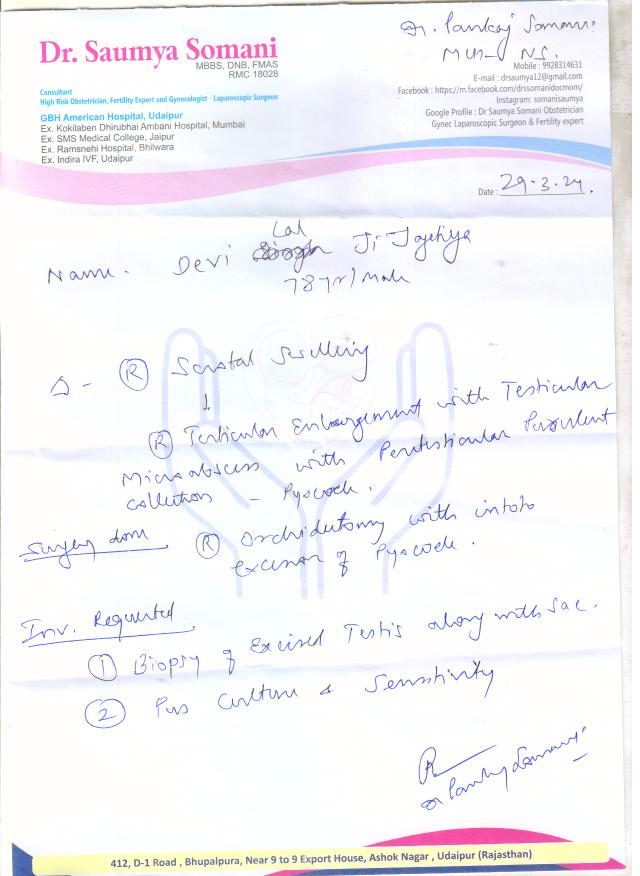 Dr. Pankaj Somani
Dr. Saumya Somani
MBBS, DNB, FMAS
RMC 18028
Consultant
High Risk Obstetrician, Fertility Expert and Gynecologist - Laparoscopic Surgeon
GBH American Hospital, Udaipur
Ex. Kokilaben Dhirubhai Ambani Hospital, Mumbai
Ex. SMS Medical College, Jaipur
Ex. Ramsnehi Hospital, Bhilwara
Ex. Indira IVF, Udaipur
Mobile : 9928314631
E-mail : drsaumya12@gmail.com
Facebook : https://m.facebook.com/drssomanidocmom/
Instagram: somanisaumya
Google Profile : Dr Saumya Somani Obstetrician
Gynec Laparoscopic Surgeon & Fertility expert
Date : 29-3-24.
Name - Devi Lal Ji
78 yr/male
Δ - (R) Scrotal Swelling
↓
(R) Testicular Enlargement with Testicular
Microabscess with Peritesticular Purulent
collection - Pyocoele.
Surgery done (R) Orchidectomy with intoto
excision of Pyocoele.
Inv. Requested
(1) Biopsy of Excised Testis along with Sac.
(2) Pus Culture & Sensitivity
Dr Pankaj Somani
412, D-1 Road , Bhupalpura, Near 9 to 9 Export House, Ashok Nagar , Udaipur (Rajasthan)